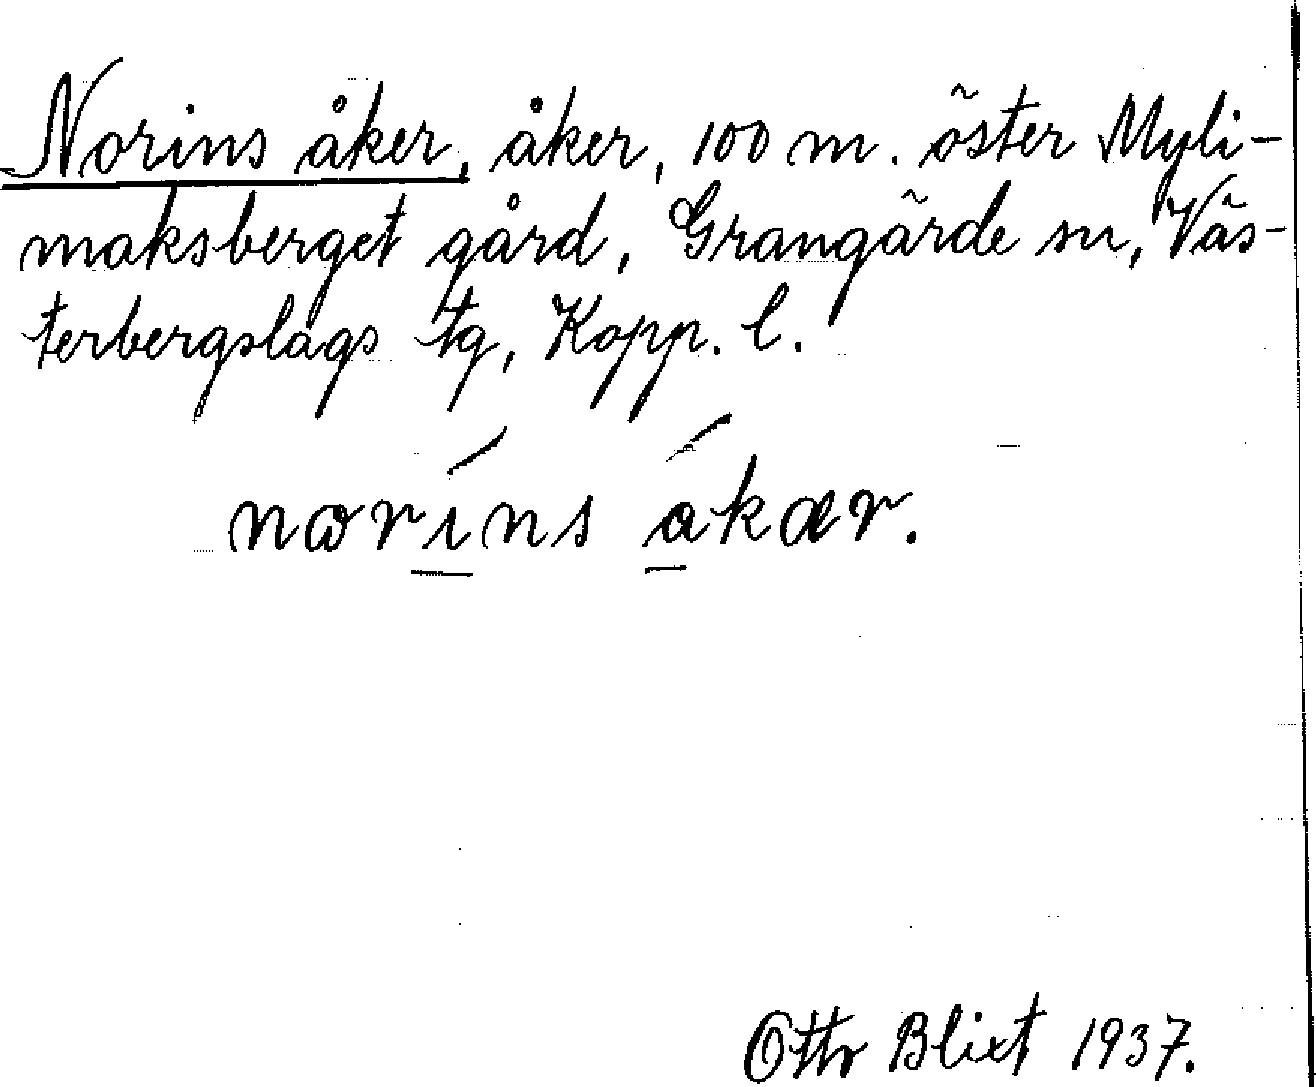 Norins åker, åker, 100 m. öster Myli-
maksberget gård, Grangärde sn, Väs-
terbergslags tg, Kopp. l.
norins åkær.
Otto Blixt 1937.